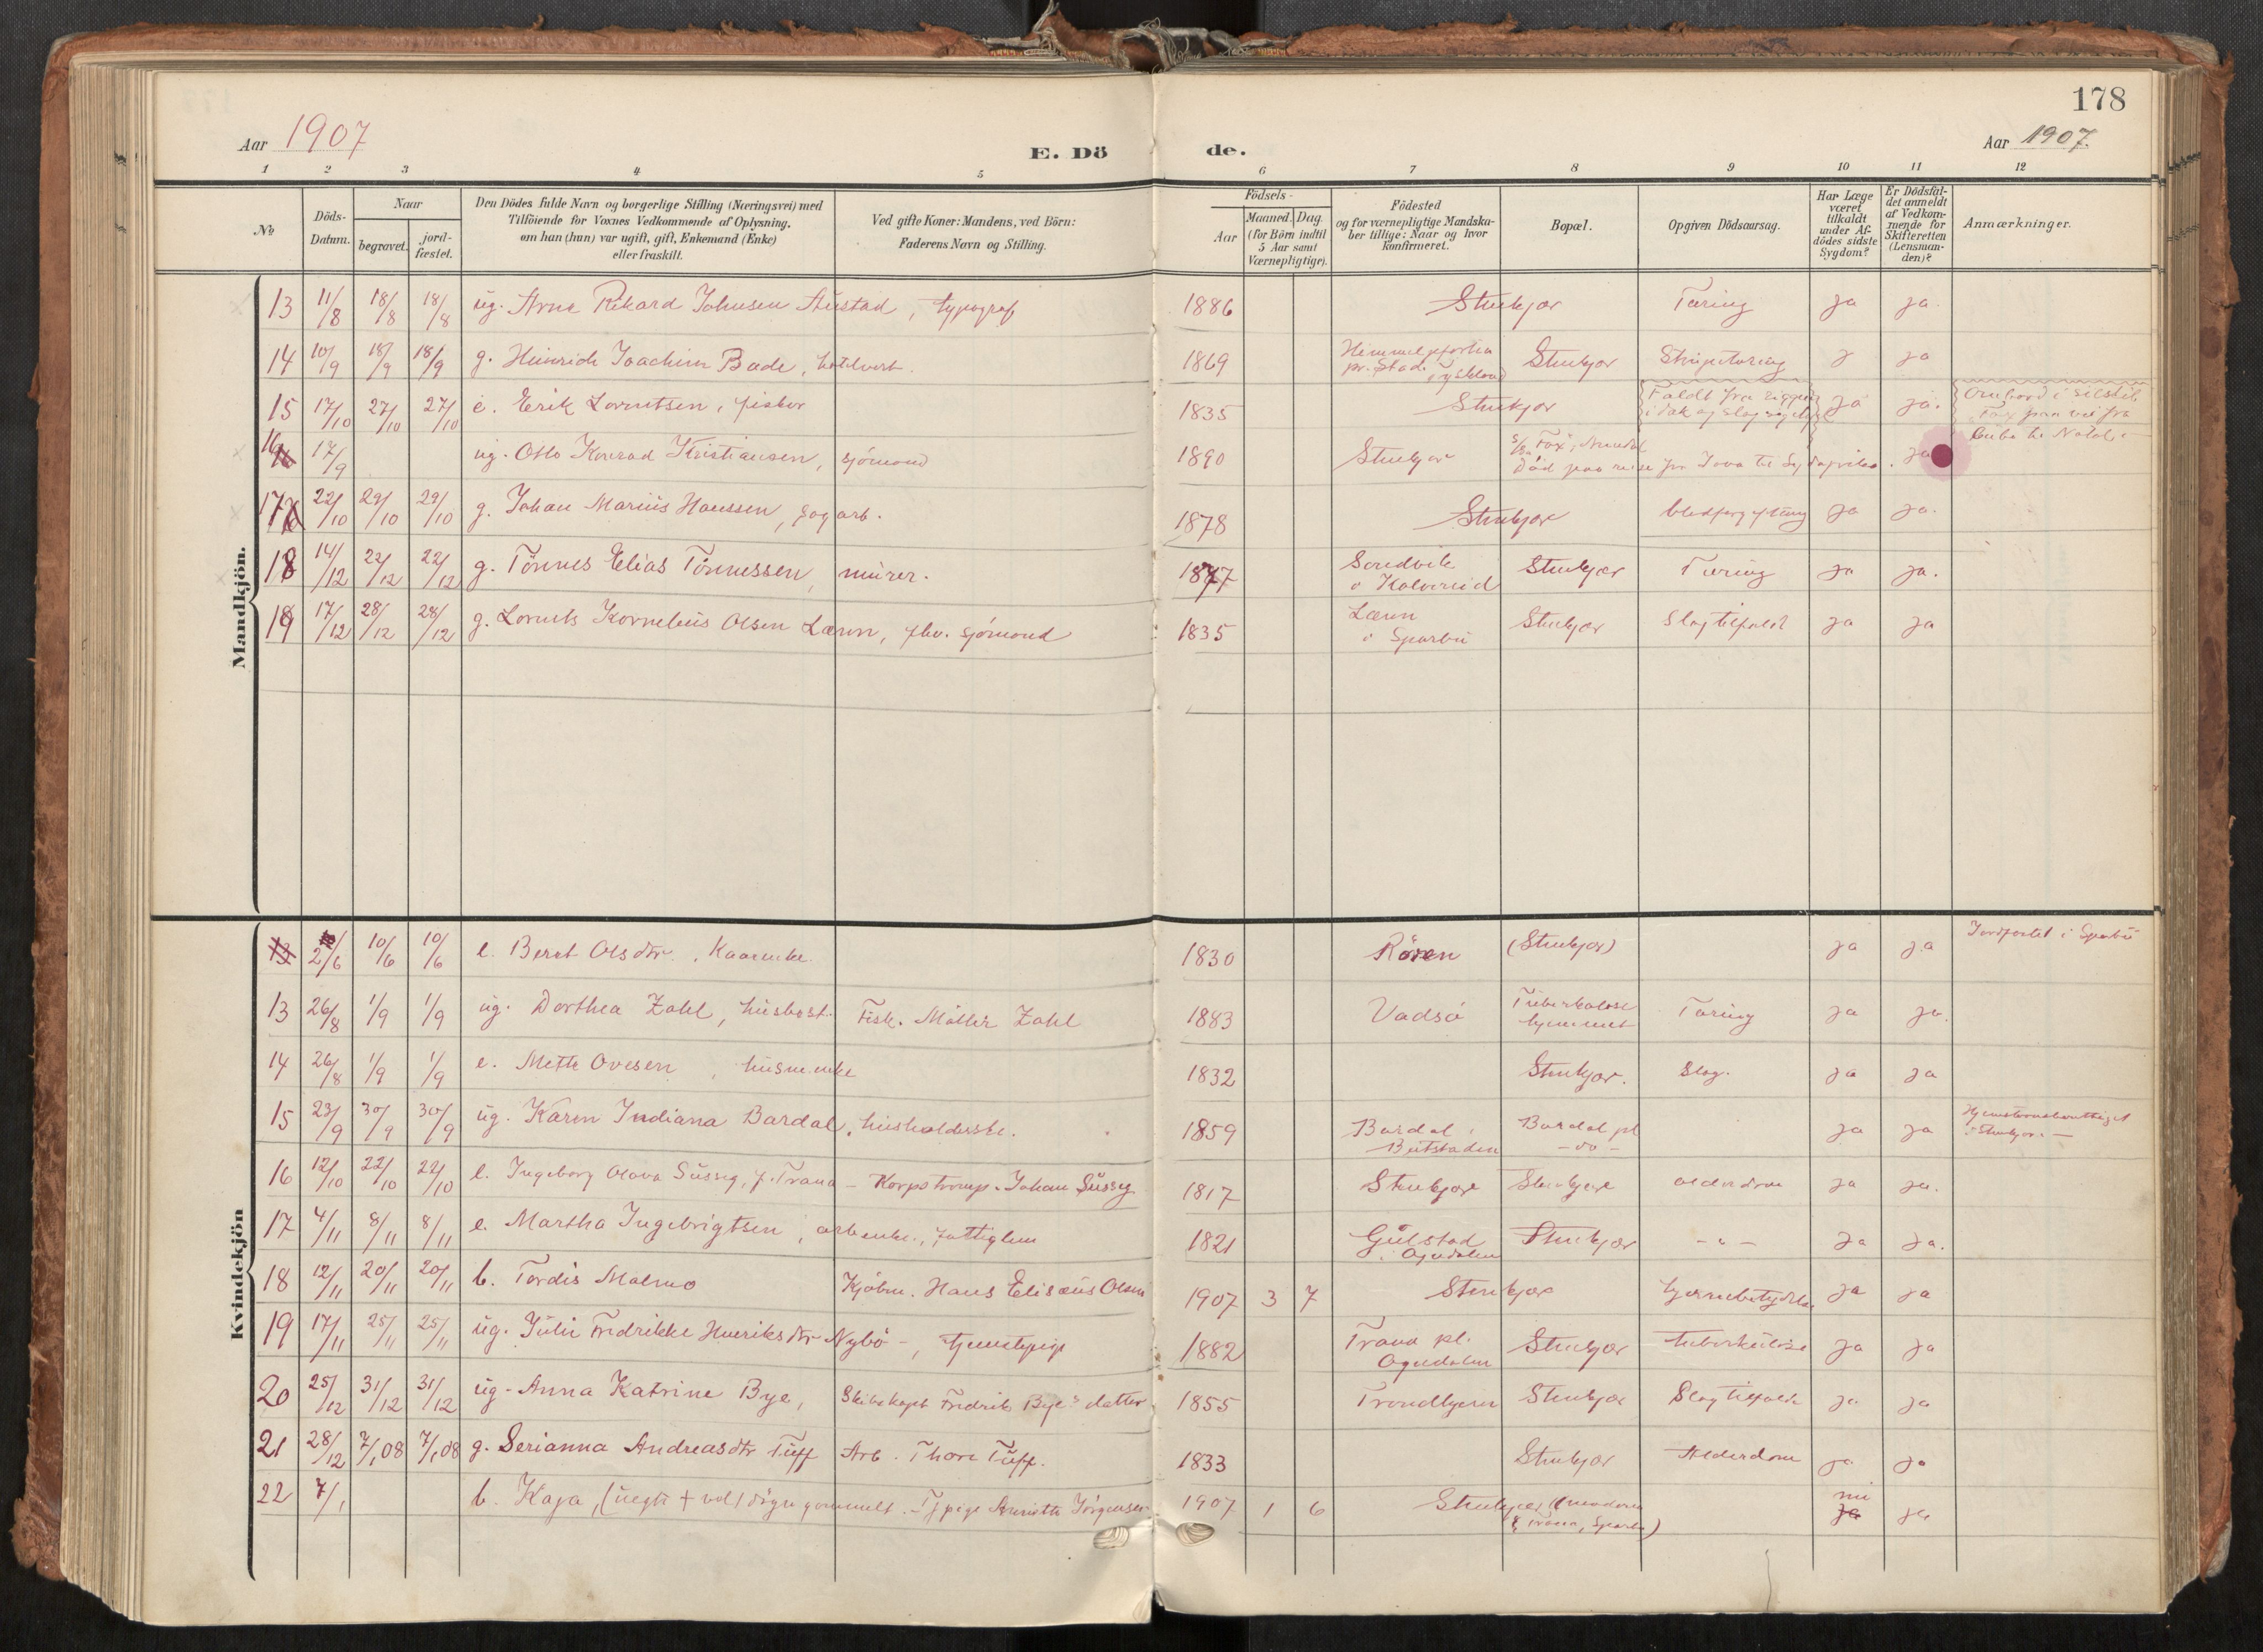 178
Aar 1907
E. Dö de.
Aar 1907.
1 2 3 4 5 6 7 8 9 10 11 12
№
Döds-Datum.
Naar
begravet.
jord-fæstet.
Den Dödes fulde Navn og borgerlige Stilling (Næringsvei) med
Tilföiende for Voxnes Vedkommende af Oplysning,
om han (hun) var ugift, gift, Enkemand (Enke)
eller fraskilt.
Ved gifte Koner: Mandens, ved Börn:
Faderens Navn og Stilling.
Födsels-
Aar
Maaned. Dag.
(for Börn indtil
5 Aar samt
Værnepligtige).
Födested
og for værnepligtige Mandska-
ber tillige: Naar og hvor
Konfirmeret.
Bopæl.
Opgiven Dödsaarsag.
Har Læge
været
tilkaldt
under Af-
dödes sidste
Sygdom?
Er Dödsfal-
det anmeldt
af Vedkom-
mende for
Skifteretten
(Lensman-
den)?
Anmærkninger.
Mandkjön.
13 11/8 18/8 18/8 ug. Arne Rikard Johnsen Austad, typograf 1886 Stenkjær Tæring ja ja.
14 10/9 18/9 18/9 g. Heinrich Joachim Bade, hotelvert. 1869 Himmelpforten
pr. Stade Tyskland Stenkjær Strupetæring j ja
15 17/10 27/10 27/10 e. Erik Lorentsen, fisker 1835 Stenkjær ja ja.
16 17/9 ug. Otto Konrad Kristiansen, sjömand 1890 Stenkjær Faldt fra riggen
Död paa reise fra Java til Sydafrika. ja
17 22/10 29/10 29/10 g. Johan Marius Hanssen, sagarb. 1878 Stenkjær blodforgiftning ja ja.
18 14/12 22/12 22/12 g. Tönnes Elias Tönnessen, murer. 1877 Sandvik
Stenkjær Tæring ja ja.
19 17/12 28/12 28/12 g. Lornts Kornelius Olsen Lænn, fhv. sjömand 1835 Lænn
i Sparbu Stenkjær Slagtilfælde ja ja
Kvindekjön
13 2/6 10/6 10/6 e. Beret Olsdtr., Kaarenke. 1830 Rören (Stenkjær) ja ja Jordfæstet i Sparbu
13 26/8 1/9 1/9 ug. Dorthea Zahl, husbest. Fisk. Möller Zahl 1883 Vadsö Tuberkulose
hjemmet Tæring ja ja.
14 26/8 1/9 1/9 e. Mette Ovesen, husm.enke 1832 Stenkjær. Slag. ja ja
15 23/9 30/9 30/9 ug. Karen Indiana Bardal, husholderske. 1859 Bardal i
Beitstaden Bardal pl
- do - ja ja
16 12/10 22/10 22/10 e. Ingeborg Olava Süssig, f. Trana - Korpstromp. Johan Süssig 1817 Stenkjær Stenkjær alderdom ja ja.
17 4/11 8/11 8/11 e. Martha Ingebrigtsen, arb.enke., fattiglem 1821 Gulstad
i Ogndalen Stenkjær - " - ja ja.
18 12/11 20/11 20/11 b. Tordis Malmo Kjöbm. Hans Elisæus Olsen 1907 3 7 Stenkjær hjernebetændelse ja ja
19 17/11 25/11 25/11 ug. Juli Fredrikke Henriksdtr Nybö -, tjenestepige 1882 Trana pl.
Ogndalen Stenkjær tuberkulose ja ja
20 25/12 31/12 31/12 ug. Anna Katrine Bye, Skibskapt Fredrik Bye's datter 1855 Trondhjem Stenkjær Slagtilfælde ja ja
21 28/12 7/1 08 7/1 08 g. Serianna Andreasdtr Tuff Arb. Thore Tuff. 1833 Stenkjær Alderdom ja ja
22 7/1 b. Kaja, (uegte + vel 1 dögn gammelt. - Tjpige Annette Jörgensen 1907 1 6 Stenkjær (moderen
fr Trana, Sparbu) nei ja ja